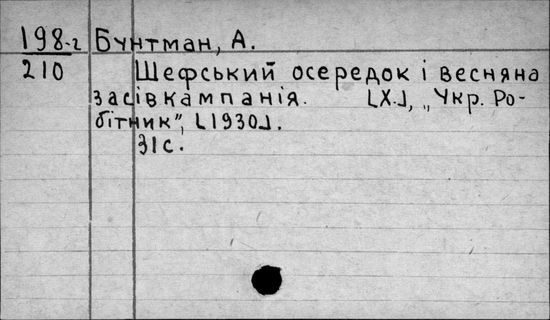 198-г Бунтман, А.
210 Шефський осередок і весняна
засівкампанія. [Х.], „Укр. Ро-
бітник”, [1930].
31 с.